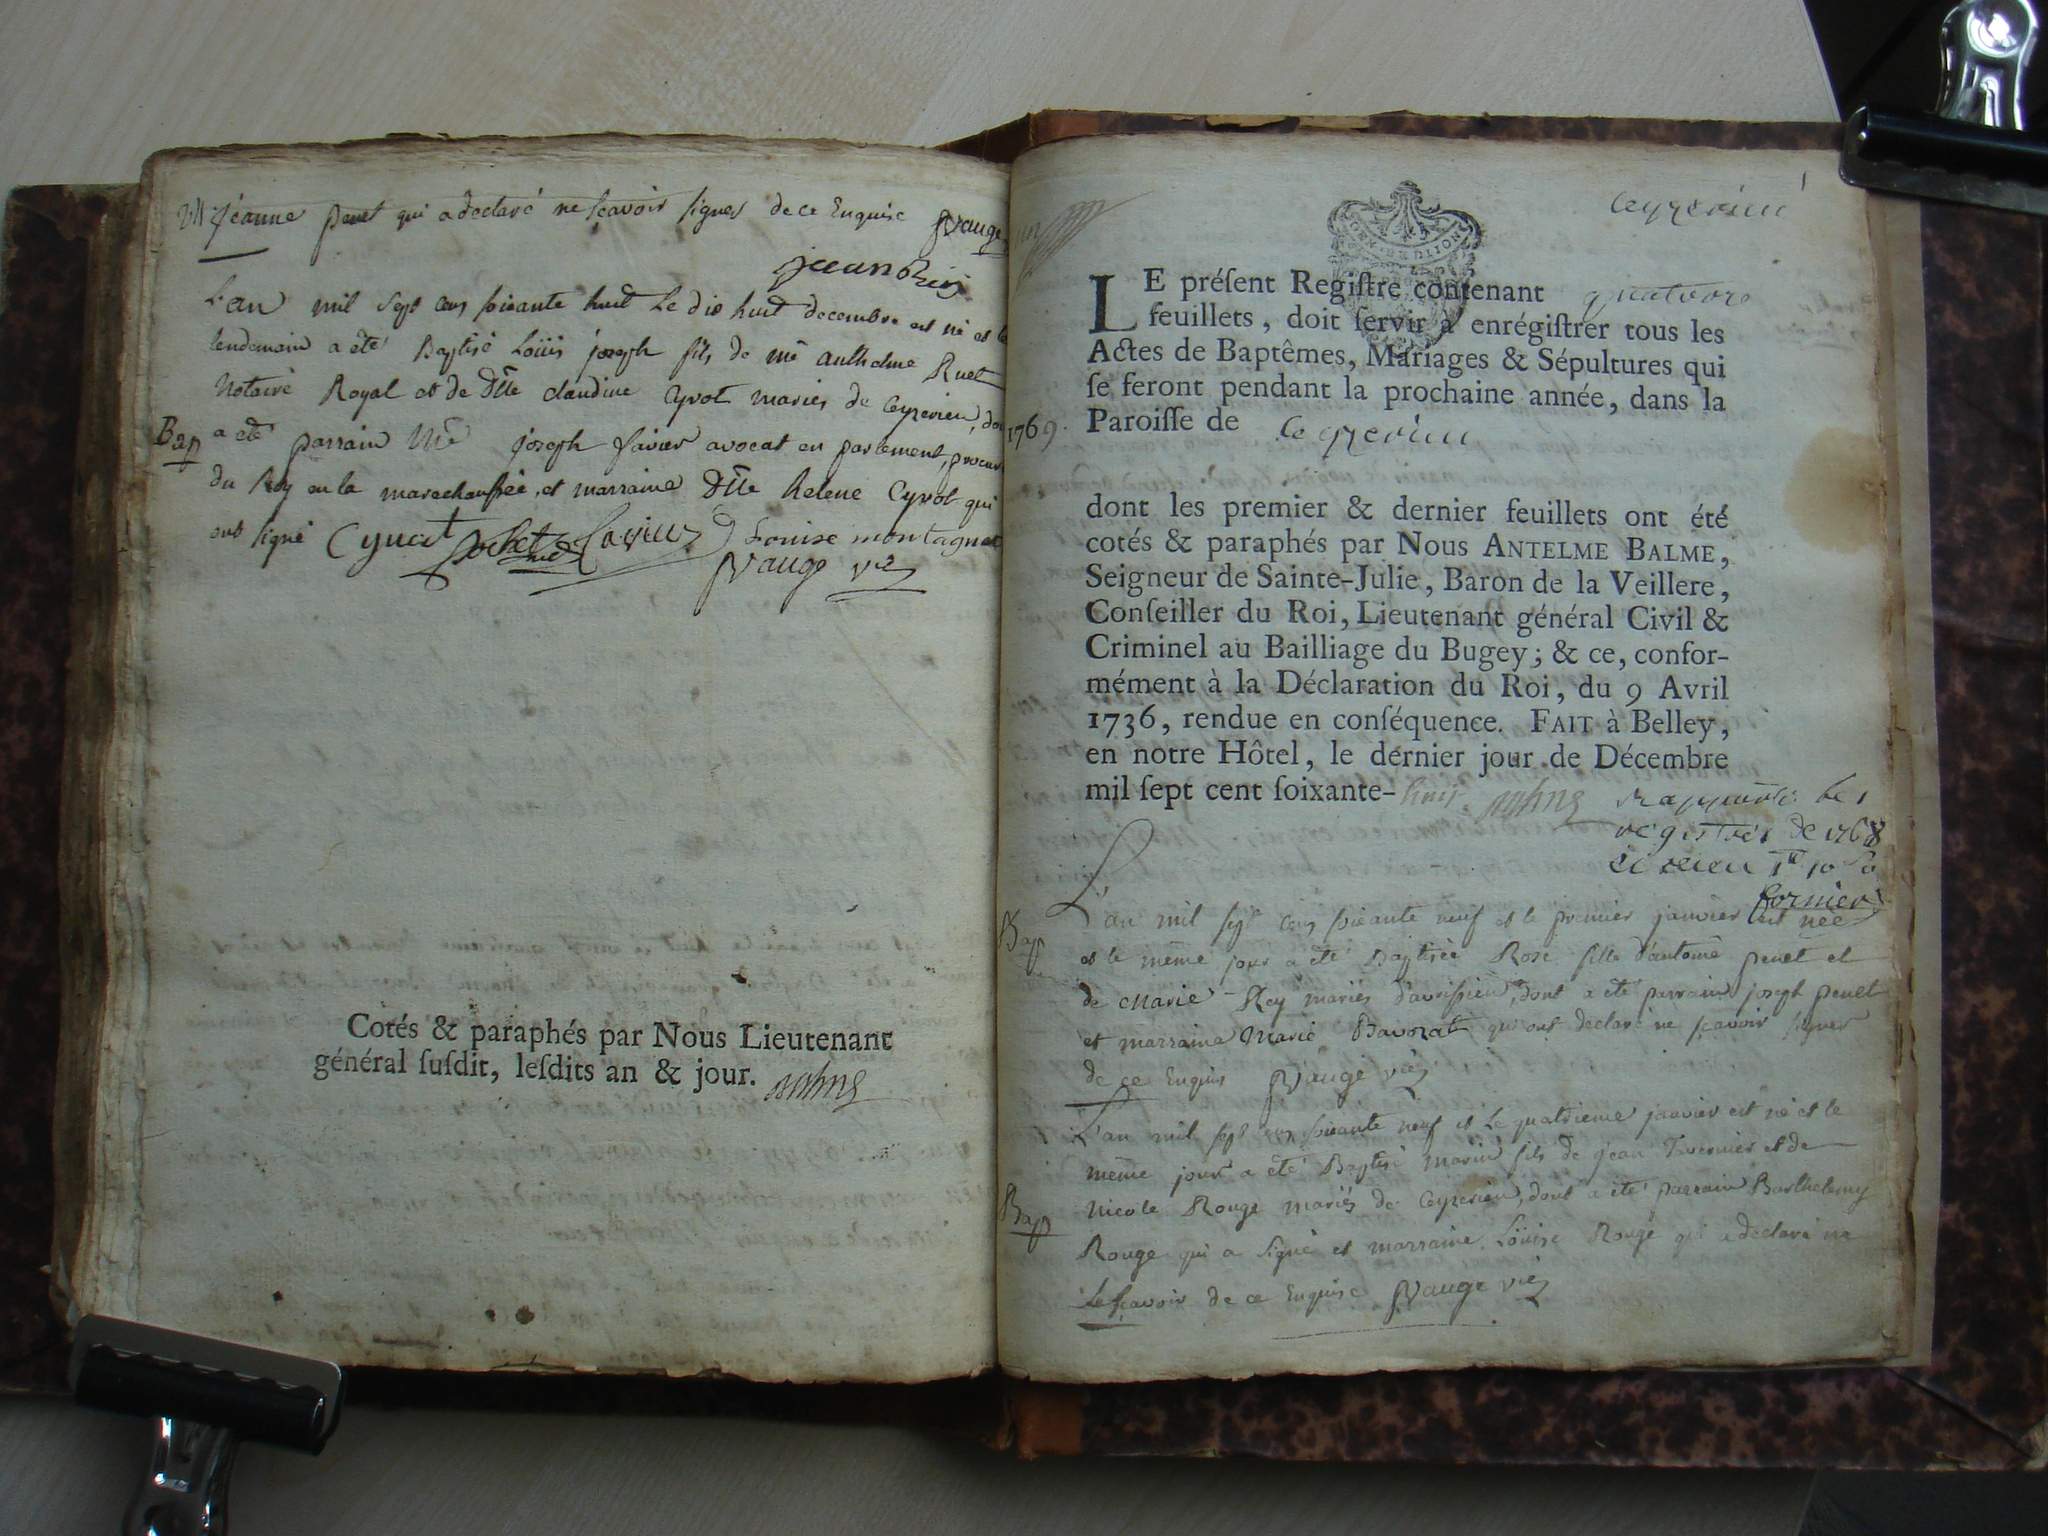 Jeanne penet qui a declaré ne sçavoir signer de ce Enquise Vauge
L'an mil sept cens soixante huit Le dix huit decembre est né et le
lendemain a été Baptisé Loüis joseph fils de me anthelme Ruet
Notaire Royal et de Dlle claudine Cyvot mariés de Ceyzerieu, dont
Bap
a été parrain Me joseph favier avocat en parlement, procur
du Roy en la marechaussée, et marraine Dlle helene Cyvot qui
ont signé Cyvoct favier Louise montagnat
Vauge vic
Cotés & paraphés par Nous Lieutenant
général ſuſdit, leſdits an & jour.
Ceyzerieu
1
LE préſent Regiſtre contenant quatorze
feuillets, doit ſervir à enrégiſtrer tous les
Actes de Baptêmes, Mariages & Sépultures qui
ſe feront pendant la prochaine année, dans la
1769.
Paroiſſe de Ceyzerieu
dont les premier & dernier feuillets ont été
cotés & paraphés par Nous ANTELME BALME,
Seigneur de Sainte-Julie, Baron de la Veillere,
Conſeiller du Roi, Lieutenant général Civil &
Criminel au Bailliage du Bugey; & ce, confor-
mément à la Déclaration du Roi, du 9 Avril
1736, rendue en conſéquence. FAIT à Belley,
en notre Hôtel, le dernier jour de Décembre
mil ſept cent ſoixante-huit.
registres de 1768
L'an mil sept cens soixante neuf et le premier janvier est née
Bap
et le même jour a été Baptisée Rose fille d'antoine penet et
de Marie Rey mariés d'avrissieu, dont a été parrain joseph penet
et marraine Marie Bavozat qui ont declaré ne sçavoir signer
de ce Enquis Vauge vic
L'an mil sept cens soixante neuf et Le quatrieme janvier est né et le
même jour a été Baptisé Marin fils de jean Tavernier et de
Bap
Nicole Rouge mariés de Ceyzerieu, dont a été parrain Barthelemy
Rouge qui a signé et marraine Loüise Rouge qui a declaré ne
Le sçavoir de ce Enquise Vauge vic